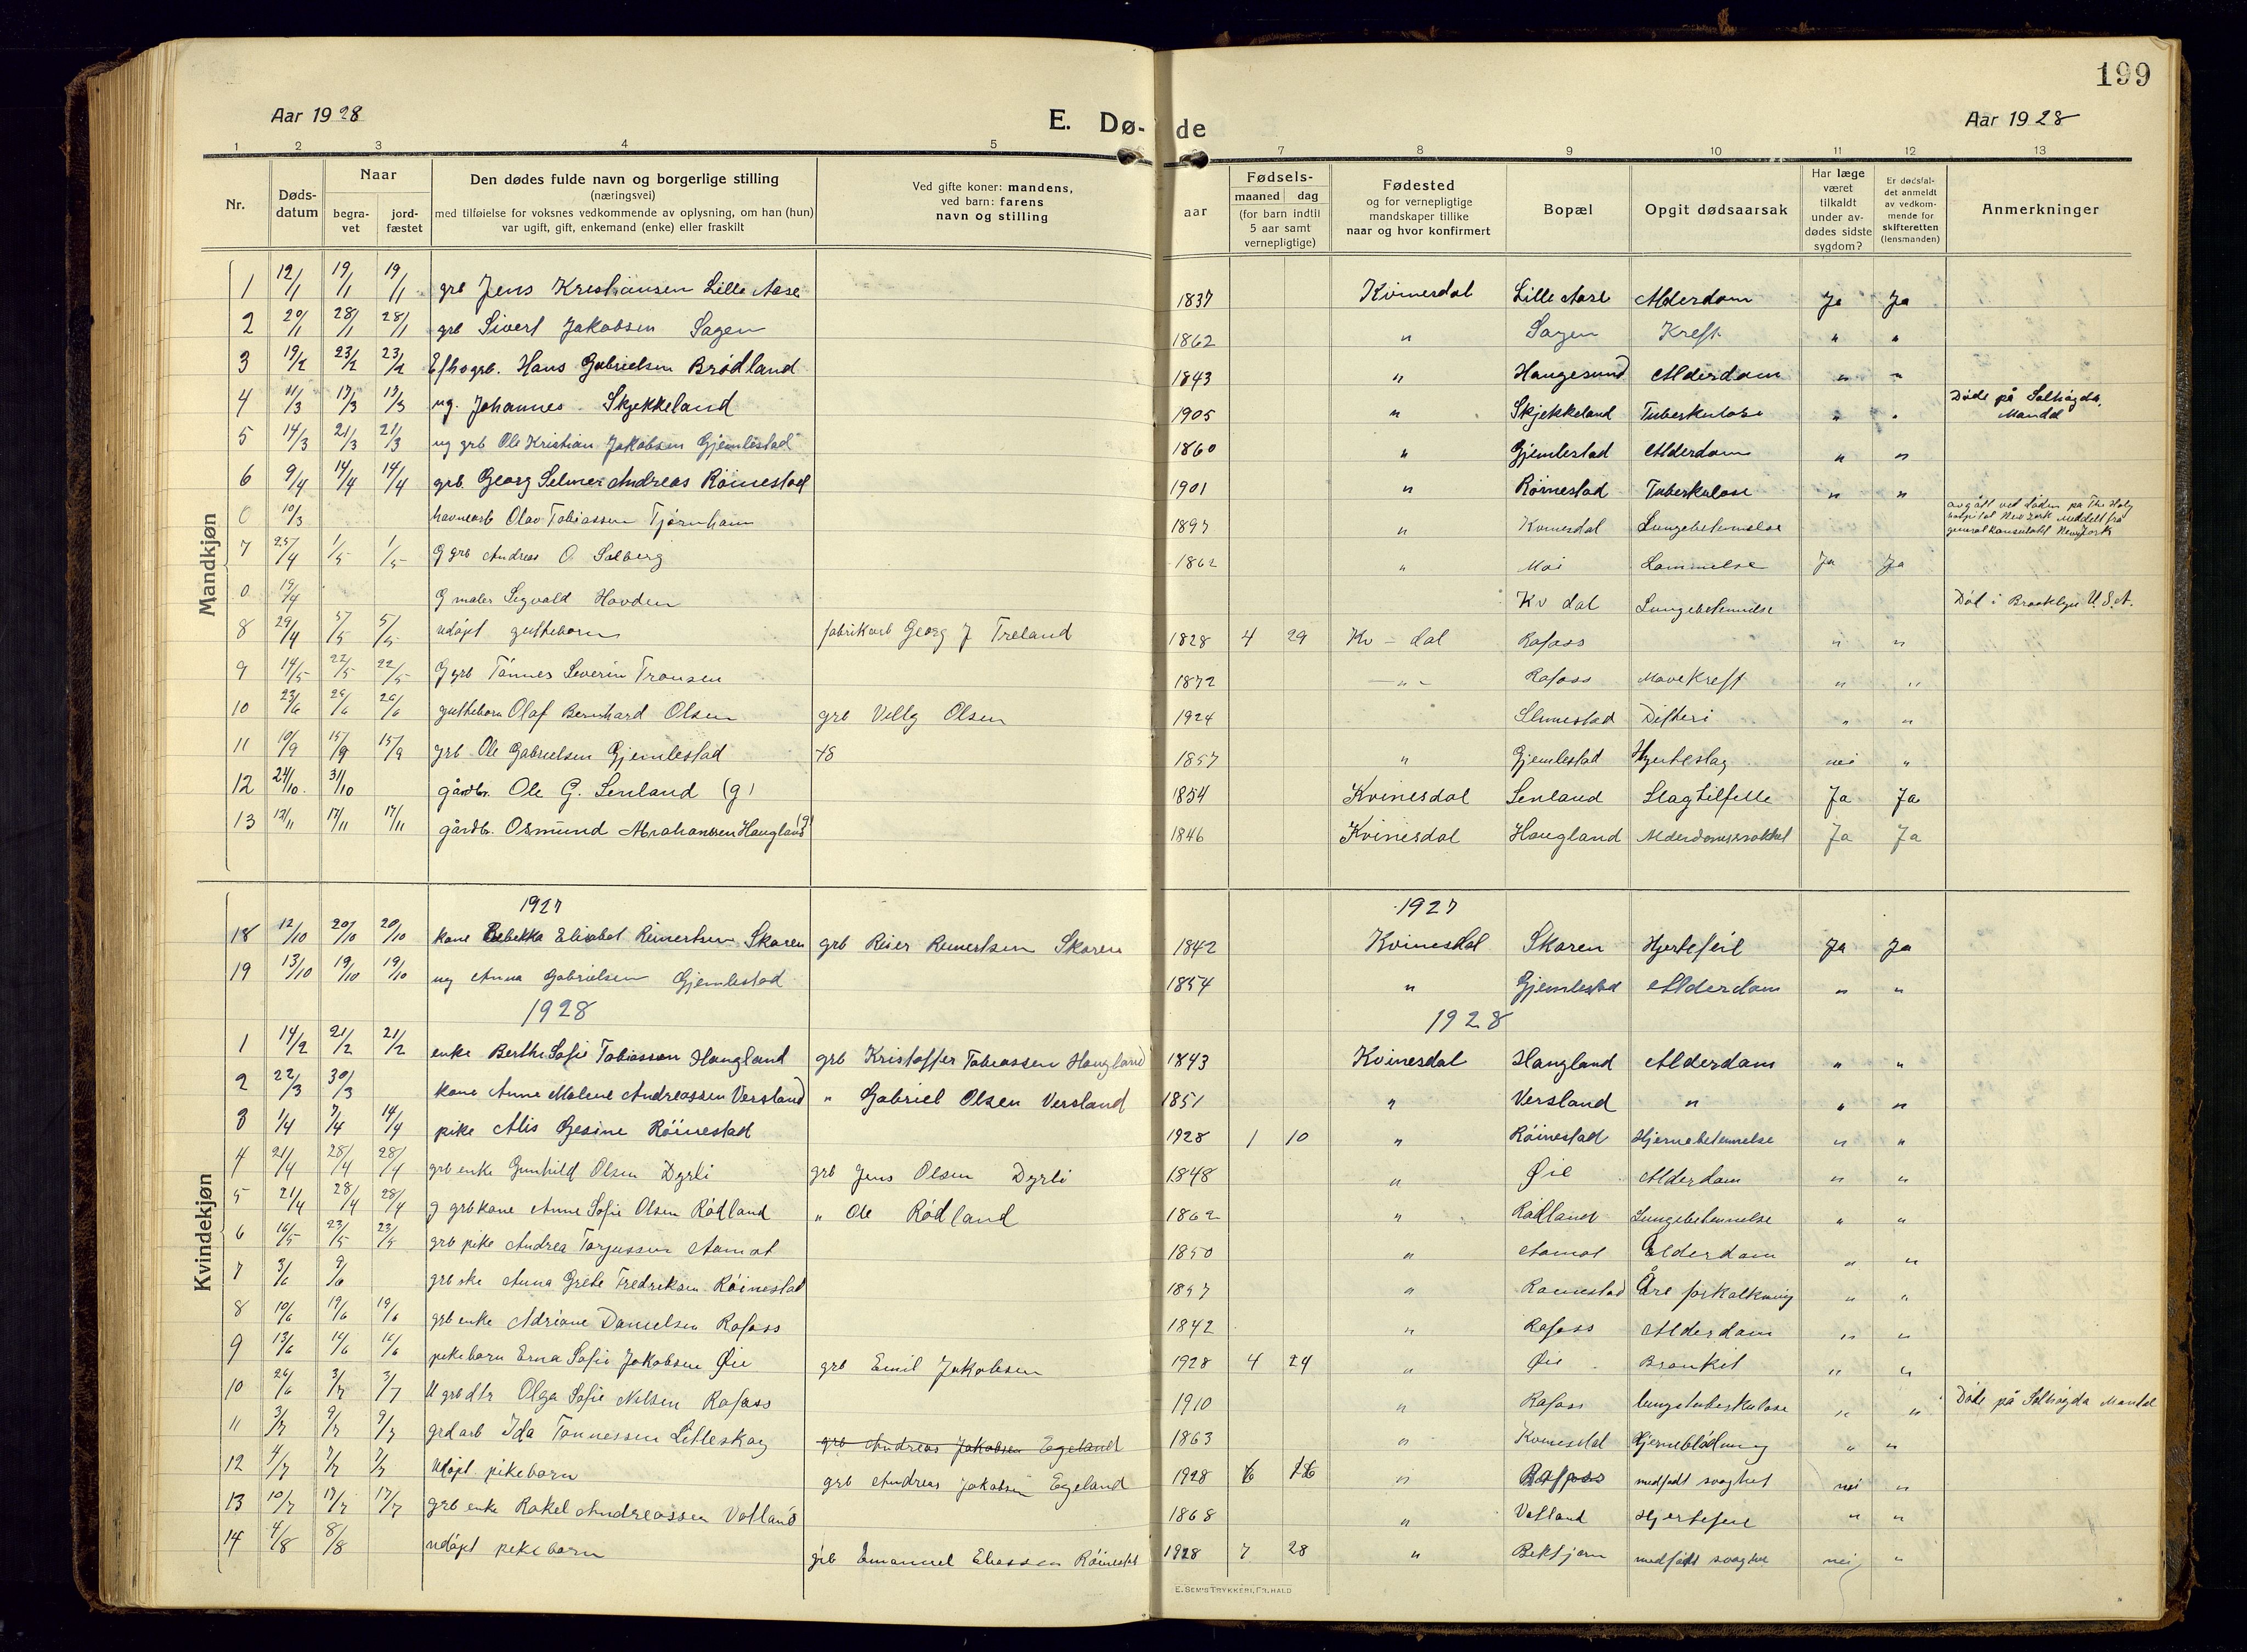 199
Aar 1928
E. Dø- de
Aar 1928
1 2 3 4 5 7 8 9 10 11 12 13
Nr.
Døds-
datum
Naar
begra-
vet
jord-
fæstet
Den dødes fulde navn og borgerlige stilling
(næringsvei)
med tilføielse for voksnes vedkommende av oplysning, om han (hun)
var ugift, gift, enkemand (enke) eller fraskilt
Ved gifte koner: mandens,
ved barn: farens
navn og stilling
Fødsels-
aar
maaned dag
(for barn indtil
5 aar samt
vernepligtige)
Fødested
og for vernepligtige
mandskaper tillike
naar og hvor konfirmert
Bopæl
Opgit dødsaarsak
Har læge
været
tilkaldt
under av-
dødes sidste
sygdom?
Er dødsfal-
det anmeldt
av vedkom-
mende for
skifteretten
(lensmanden)
Anmerkninger
Mandkjøn
1 12/1 19/1 19/1 grb Jens Kristiansen Lille Aase 1837 Kvinesdal Lille Aase Alderdom Ja Ja
2 20/1 28/1 28/1 grb Sivert Jakobsen Sagen 1862 " Sagen Kreft " "
3 19/2 23/2 23/2 Hans Gabrielsen Brødland 1843 " Haugesund Alderdom " "
4 11/3 17/3 17/3 ug. Johannes Skjekkeland 1905 " Skjekkeland Tuberkulose " " Døde på Solhøgda, Mandal
5 14/3 21/3 21/3 ug grb Ole Kristian Jakobsen Gjemlestad 1860 " Gjemlestad Alderdom " "
6 9/4 14/4 14/4 grb. Georg Selmer Andreas Röinestad 1901 " Röinestad Tuberkulose " "
0 10/3 havnearb Olav Tobiassen Tjørnhom 1897 " Kvinesdal Lungebetennelse avgått ved døden på The Holy hospital New York meddelt fra generalkonsulatet New York
7 25/4 1/5 1/5 G grb Andreas O Solberg 1862 " Moi Lammelse Ja Ja
0 19/4 G maler Sigvald Hovden Kv dal Lungebetennelse Död i Brooklyn U.S.A.
8 29/4 5/5 5/5 udöpt guttebarn fabrikarb Georg J Treland 1828 4 29 Kv - dal Rafoss " "
9 14/5 22/5 22/5 G grb Tönnes Severin Tronsen 1872 " Rafoss Mavekreft " "
10 23/6 29/6 29/6 guttebarn Olaf Bernhard Olsen grb Villy Olsen 1924 Slimestad Difteri " "
11 10/9 15/9 15/9 grb Ole Gabrielsen Gjemlestad 1857 " Gjemlestad Hjerteslag nei "
12 24/10 31/10 gårdbr. Ole G. Senland (g) 1854 Kvinesdal Senland Slagtilfelle Ja Ja
13 12/11 17/11 17/11 gårdbr. Osmund Abrahamsen Haugland (g) 1846 Kvinesdal Haugland Ja Ja
Kvindekjøn
1927 1927
18 12/10 20/10 20/10 kone Rebekka Elisabet Reinertsen Skaren grb Reier Reinertsen Skaren 1842 Kvinesdal Skaren Hjertefeil Ja Ja
19 13/10 19/10 19/10 ug Anna Gabrielsen Gjemlestad 1854 " Gjemlestad Alderdom " "
1928 1928
1 14/2 21/2 21/2 enke Berthe Sofie Tobiassen Haugland grb Kristoffer Tobiassen Haugland 1843 Kvinesdal Haugland Alderdom " "
2 22/3 30/3 kone Anne Malene Andreassen Versland " Gabriel Olsen Versland 1851 " Versland " " "
3 1/4 7/4 14/4 pike Alis Gesine Röinestad 1928 1 10 " Röinestad Hjernebetennelse " "
4 21/4 28/4 28/4 grb enke Gunhild Olsen Dyrli grb Jens Olsen Dyrli 1848 " Øie Alderdom " "
5 21/4 28/4 28/4 g grb kone Anne Sofie Olsen Rödland " Ole Rödland 1862 " Rödland Lungebetennelse " "
6 16/5 23/5 23/5 grb pike Andrea Torjussen Aamot 1850 " Aamot Alderdom " "
7 3/6 9/6 grb Anna Grete Fredriksen Röinestad 1857 " Roinestad Åre forkalkning " "
8 10/6 19/6 19/6 grb enke Adriane Danielsen Rafoss 1842 " Rafoss Alderdom " "
9 13/6 16/6 16/6 pikebarn Erna Sofie Jakobsen Øie grb Emil Jakobsen 1928 4 24 " Øie Bronkit " "
10 26/6 3/7 3/7 U grb dtr Olga Sofie Nilsen Rafoss 1910 " Rafoss lungetuberkulose " " Döde på Solhögda Mandal
11 3/7 9/7 9/7 Ida Tonnessen Litleskog grb Andreas Jakobsen Egeland 1863 " Kvinesdal Hjerneblödning " "
12 4/7 7/7 7/7 Udöpt pikebarn grb Andreas Jakobsen Egeland 1928 " Rafoss medfødt svaghet nei "
13 10/7 17/7 17/7 grb enke Rakel Andreassen Vatland 1868 " Vatland Hjertefeil " "
14 4/8 8/8 udöpt pikebarn grb Emanuel Eliassen Röinestad 1928 7 28 " medfødt svaghet nei "
E. SEM'S TRYKKERI, FR.HALD